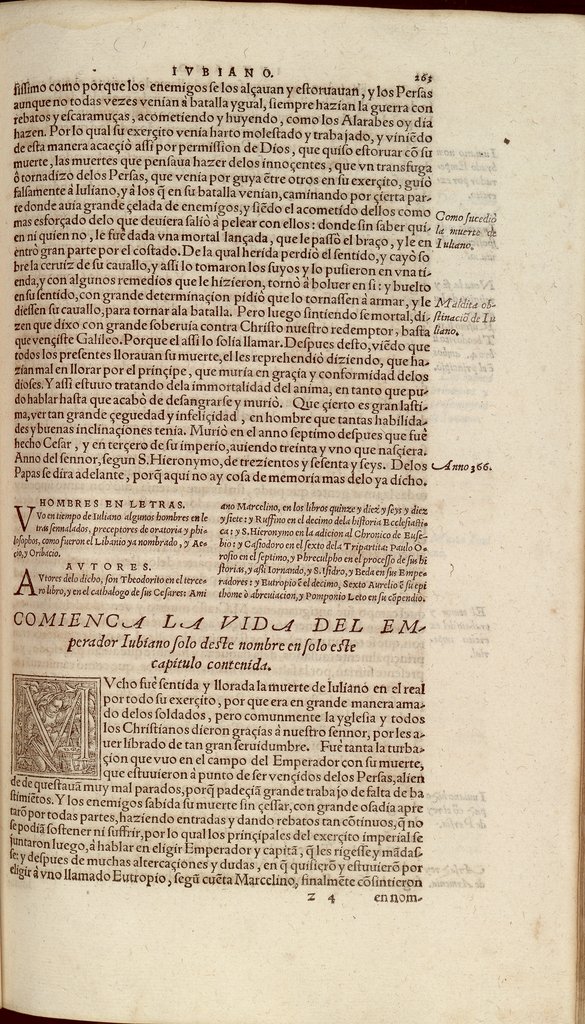 IVBIANO. 263
ſiſſimo como porque los enemigos ſe los alçauan y eſtoruauan, y los Perſas
aunque no todas vezes venían a batalla ygual, ſiempre hazían la guerra con
rebatos y eſcaramuças, acometiendo y huyendo, como los Alarabes oy día
hazen. Por lo qual su exerçito venía harto moleſtado y trabajado, y viniẽdo
de eſta manera acaeçiò aſſi por permiſſion de Dios, que quiſo eſtoruar cõ ſu
muerte, las muertes que penſaua hazer delos innoçentes, que vn transfuga
ò tornadizo delos Perſas, que venía por guya ẽtre otros en ſu exerçito, guiò
falſamente à Iuliano, y à los q̃ en ſu batalla venían, caminando por çierta par-
te donde auía grande çelada de enemigos, y ſiẽdo el acometido dellos como
mas esforçado delo que deuiera ſaliò à pelear con ellos: donde sin ſaber quí-
en ni quien no, le fuè dada vna mortal lançada, que le paſſò el braço, y le en
entrò gran parte por el coſtado. De la qual herida perdiò el ſentido, y cayò ſo
bre la ceruiz de ſu cauallo, y aſſi lo tomaron los ſuyos y lo puſieron en vna tí-
enda, y con algunos remedios que le hizieron, tornò à boluer en ſi: y buelto
en ſu ſentido, con grande determinaçion pidiò que lo tornaſſen à armar, y le
dieſſen ſu cauallo, para tornar ala batalla. Pero luego ſintiendo ſe mortal, di-
zen que dixo con grande ſoberuía contra Chriſto nueſtro redemptor, baſta
que vençiſte Galileo. Porque el aſſi lo ſolía llamar. Deſpues deſto, viẽdo que
todos los preſentes llorauan ſu muerte, el les reprehendiò diziendo, que ha-
zían mal en llorar por el prínçipe, que muría en graçía y conformidad delos
dioſes. Y aſſi eſtuuo tratando dela immortalidad del anima, en tanto que pu-
do hablar haſta que acabò de deſangrarſe y muriò. Que çierto es gran laſti-
ma, ver tan grande çeguedad y infeliçidad, en hombre que tantas habilida-
des y buenas inclinaçiones tenía. Muriò en el anno ſeptimo deſpues que fuè
hecho Ceſar, y en terçero de ſu imperio, auiendo treínta y vno que naſçiera.
Anno del ſennor, ſegun S. Hieronymo, de trezientos y ſeſenta y ſeys. Delos
Papas ſe dira adelante, porq̃ aquí no ay coſa de memoria mas delo ya dicho.
Como ſucediò
la muerte de
Iuliano.
Maldita ob-
ſtinaciò de Iu
liano.
Anno 366.
HOMBRES EN LETRAS.
Vvo en tiempo de Iuliano algunos hombres en le
tras ſennalados, preceptores de oratoria y phi-
loſophos, como fueron el Libanio ya nombrado, y Ae-
cio, y Oribacio.
AVTORES.
AVtores delo dicho, ſon Theodorito en el terce-
ro libro, y en el cathalogo de ſus Ceſares: Ami
ano Marcelino, en los libros quinze y diez y ſeys y diez
y ſiete: y Ruffino en el decimo dela hiſtoria Eccleſiaſti-
ca: y S. Hieronymo en la adicion al Chronico de Euſe-
bio: y Caſiodoro en el ſexto dela Tripartita: Paulo O-
roſio en el ſeptimo, y Phreculpho en el proceſſo de ſus hi
ſtorias, y aſſi Iornando, y S. Iſidro, y Beda en ſus Empe-
radores: y Eutropio ẽ el decimo, Sexto Aurelio ẽ ſu epi
thome ò abreuiacion, y Pomponio Leto en ſu cõpendio.
COMIENCA LA VIDA DEL EM-
perador Iubiano ſolo deſte nombre en ſolo eſte
capitulo contenida.
MVcho fuè ſentida y llorada la muerte de Iuliano en el real
por todo ſu exerçito, por que era en grande manera ama-
do delos ſoldados, pero comunmente la ygleſia y todos
los Chriſtianos dieron graçias à nueſtro ſennor, por les a-
uer librado de tan gran ſeruidumbre. Fuè tanta la turba-
çion que vuo en el campo del Emperador con ſu muerte,
que eſtuuieron à punto de ſer vençidos delos Perſas, allen
de de queſtauã muy mal parados, porq̃ padeçiã grande trabajo de falta de ba
ſtimiẽtos. Y los enemigos ſabida ſu muerte ſin çeſſar, con grande oſadía apre
tarõ por todas partes, haziendo entradas y dando rebatos tan cõtinuos, q̃ no
ſe podiã ſoſtener ni ſuffrir, por lo qual los prinçipales del exerçito imperial ſe
juntaron luego, à hablar en eligir Emperador y capitã, q̃ les rigeſſe y mãdaſ-
ſe: y deſpues de muchas altercaçiones y dudas, en q̃ quiſierõ y eſtuuierõ por
eligir à vno llamado Eutropio, ſegũ cuẽta Marcelino, finalmẽte cõſintieron
Z 4 en nom-